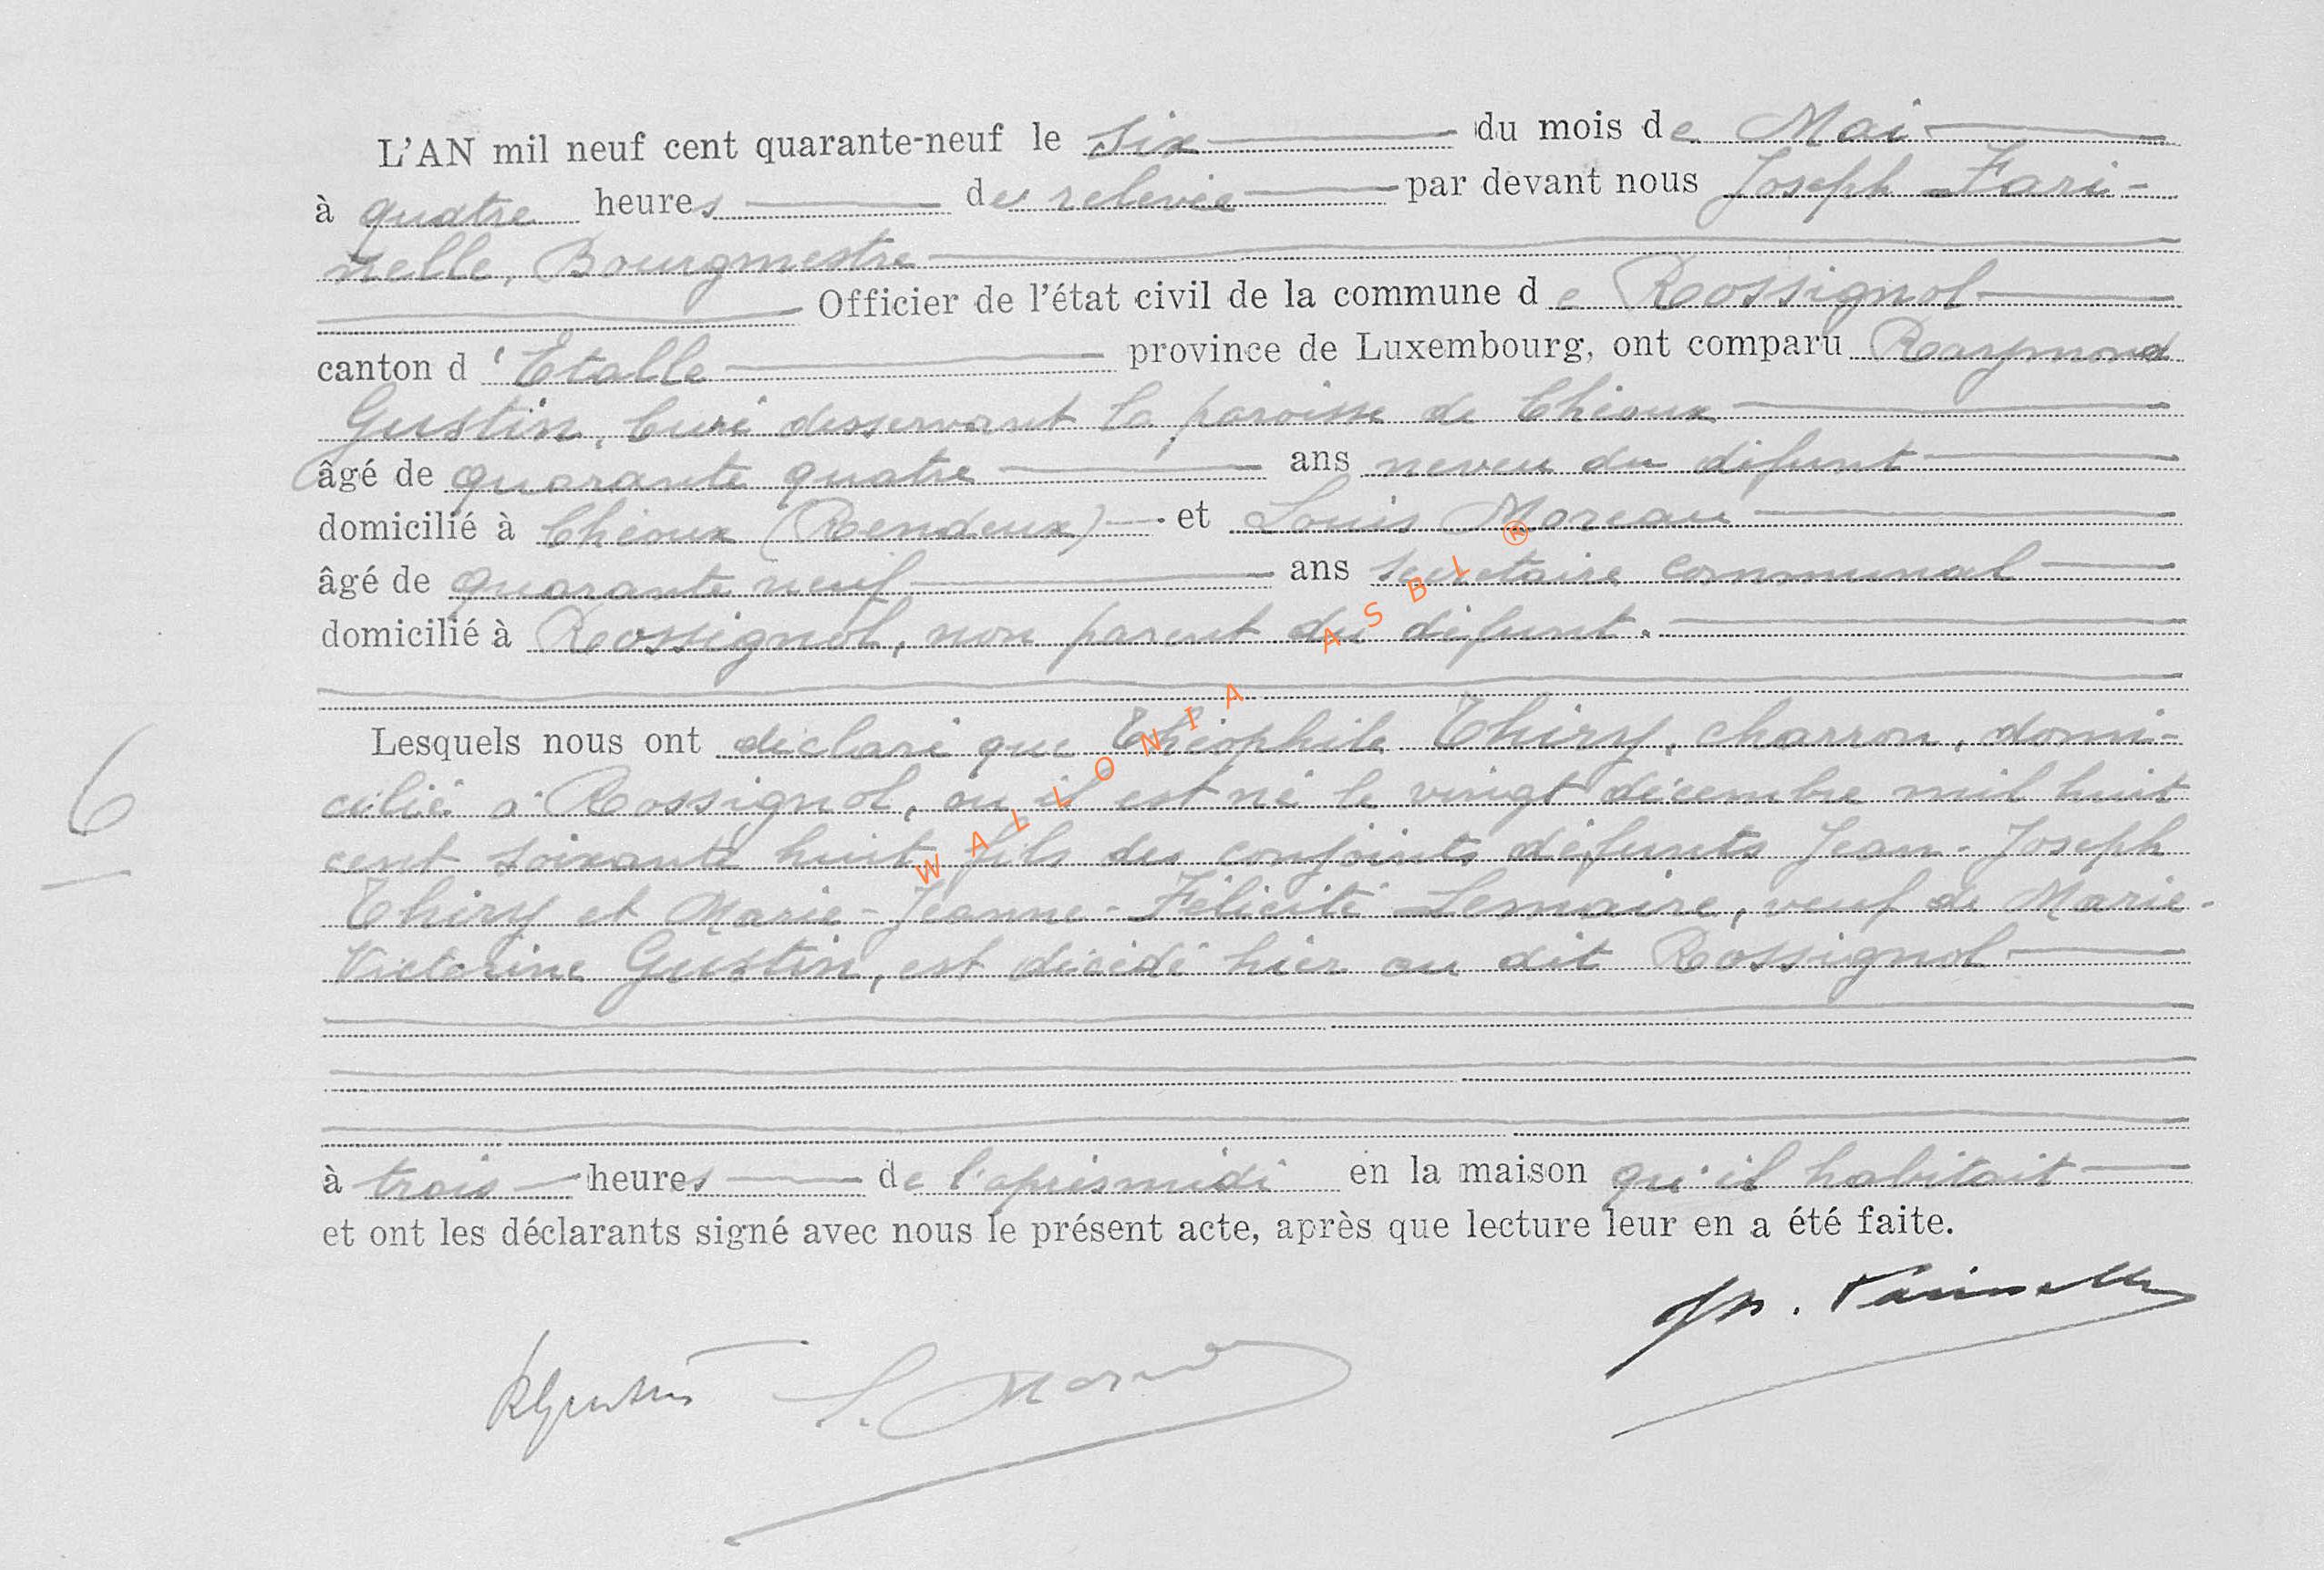 L'AN mil neuf cent quarante-neuf le six du mois de Mai
à quatre heures de relevée par devant nous Joseph Fari-
nelle, Bourgmestre
Officier de l'état civil de la commune de Rossignol
canton d'Etalle province de Luxembourg, ont comparu Raymond
Gustin, Curé desservant la paroisse de Chéoux
âgé de quarante quatre ans neveu du défunt
domicilié à Chéoux (Rendeux) et Louis Moreau
âgé de quarante neuf ans secrétaire communal
domicilié à Rossignol, non parent du défunt.
Lesquels nous ont déclaré que Théophile Thiry, charron, domi-
cilié à Rossignol, où il est né le vingt décembre mil huit
6
cent soixante huit fils des conjoints défunts Jean-Joseph
Thiry et Marie-Jeanne-Félicité Lemaire, veuf de Marie-
Victorine Gustin, est décédé hier au dit Rossignol
à trois heures de l'aprèsmidi en la maison qu'il habitait
et ont les déclarants signé avec nous le présent acte, après que lecture leur en a été faite.
Jos. Farinelle
RGustin L. Moreau
WALLONIA ASBL ®